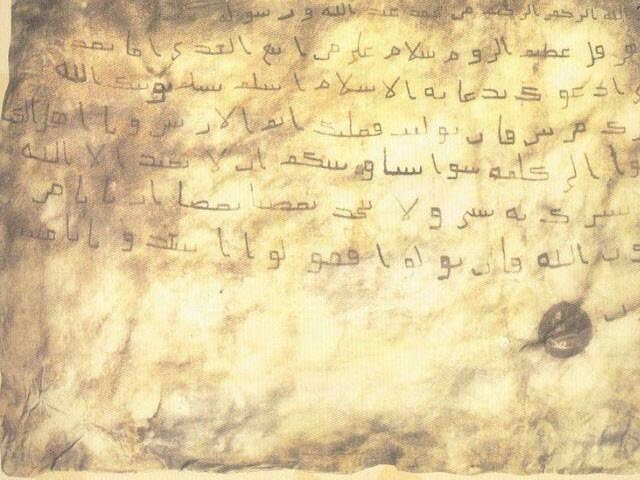 الله الرحمن الرحيم من محمد عبد الله ورسوله
هرقل عظيم الروم سلام على من اتبع الهدى اما بعد
ادعوك بدعاية الاسلام اسلم تسلم يوتك الله
ك مرتين فان توليت فعليك اثم الاريسين ويا اهل الكتا
وا الى كلمة سوا بيننا وبينكم ان لا نعبد الا الله
نشرك به شي ولا يتخذ بعضنا بعضا اربابا من
دون الله فان تولوا فقولوا اشهدوا بانا مسلمو